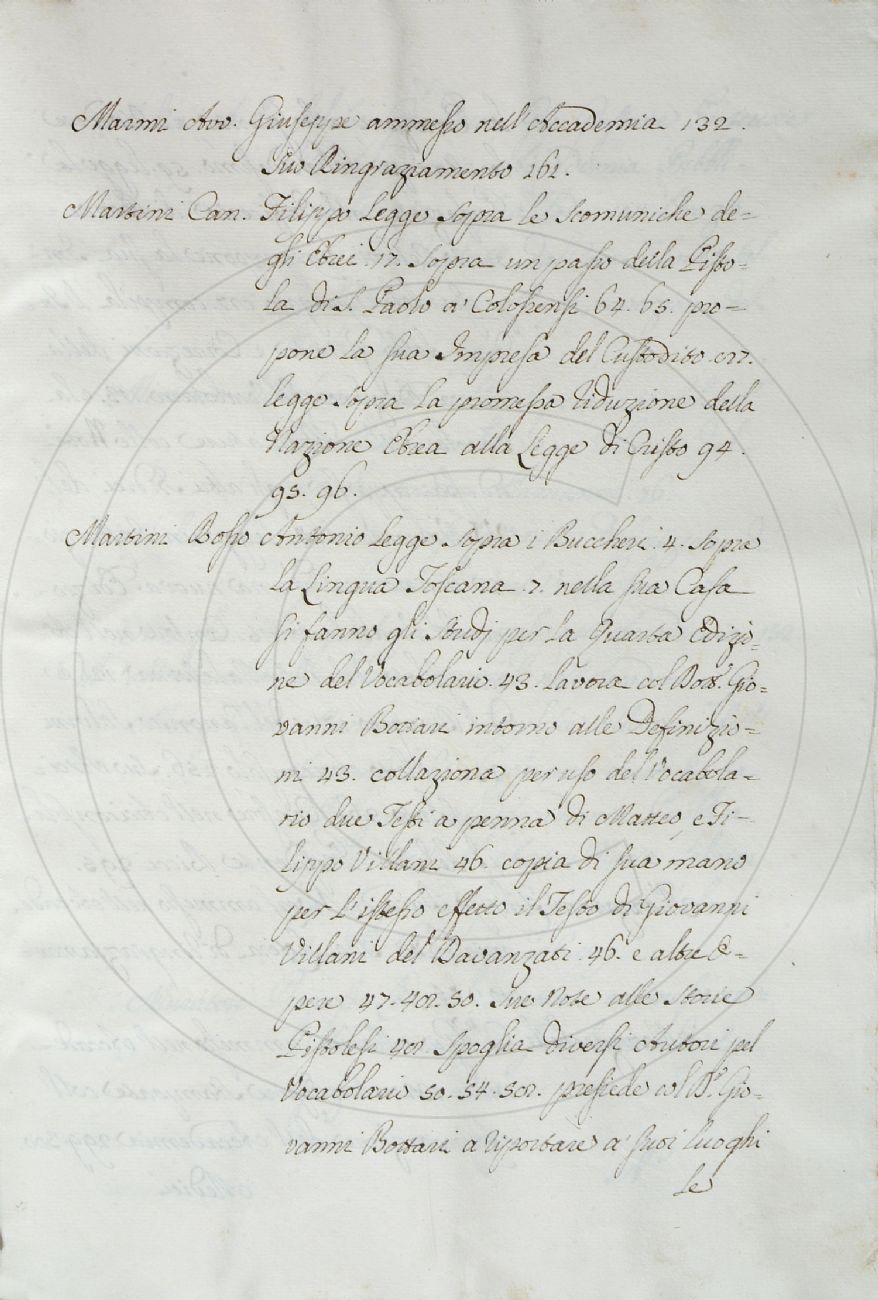 Marmi Avv. Giuseppe ammesso nell'Accademia 132.
Suo Ringraziamento 161.
Martini Can. Filippo Legge sopra le scomuniche de=
gli Ebrei. 17. Sopra un passo della Pisto=
la di S. Paolo a' Colossensi 64. 65. pro=
pone la sua Impresa del Custodito
legge sopra la promessa riduzione della
Nazione Ebrea alla Legge di Cristo 94.
95. 96.
Martini Rosso Antonio Legge sopra i Buccheri. 4. sopra
la Lingua Toscana. 7. nella sua Casa
si fanno gli studj per la Quarta Edizio=
ne del Vocabolario. 43. lavora col Dott. Gio=
vanni Bottari intorno alle Definizio=
ni 43. collaziona per uso del Vocabola=
rio due Testi a penna di Matteo, e Fi=
lippo Villani 46. copia di sua mano
per l'istesso effetto il Testo di Giovanni
Villani del Davanzati. 46. e altre O=
pere 47. 48. 50. sue Note alle Storie
Pistolesi 48. Spoglia diversi Autori pel
Vocabolario 50. 54. 58. presiede col D. Gio=
vanni Bottari a riportare a' suoi luoghi
le